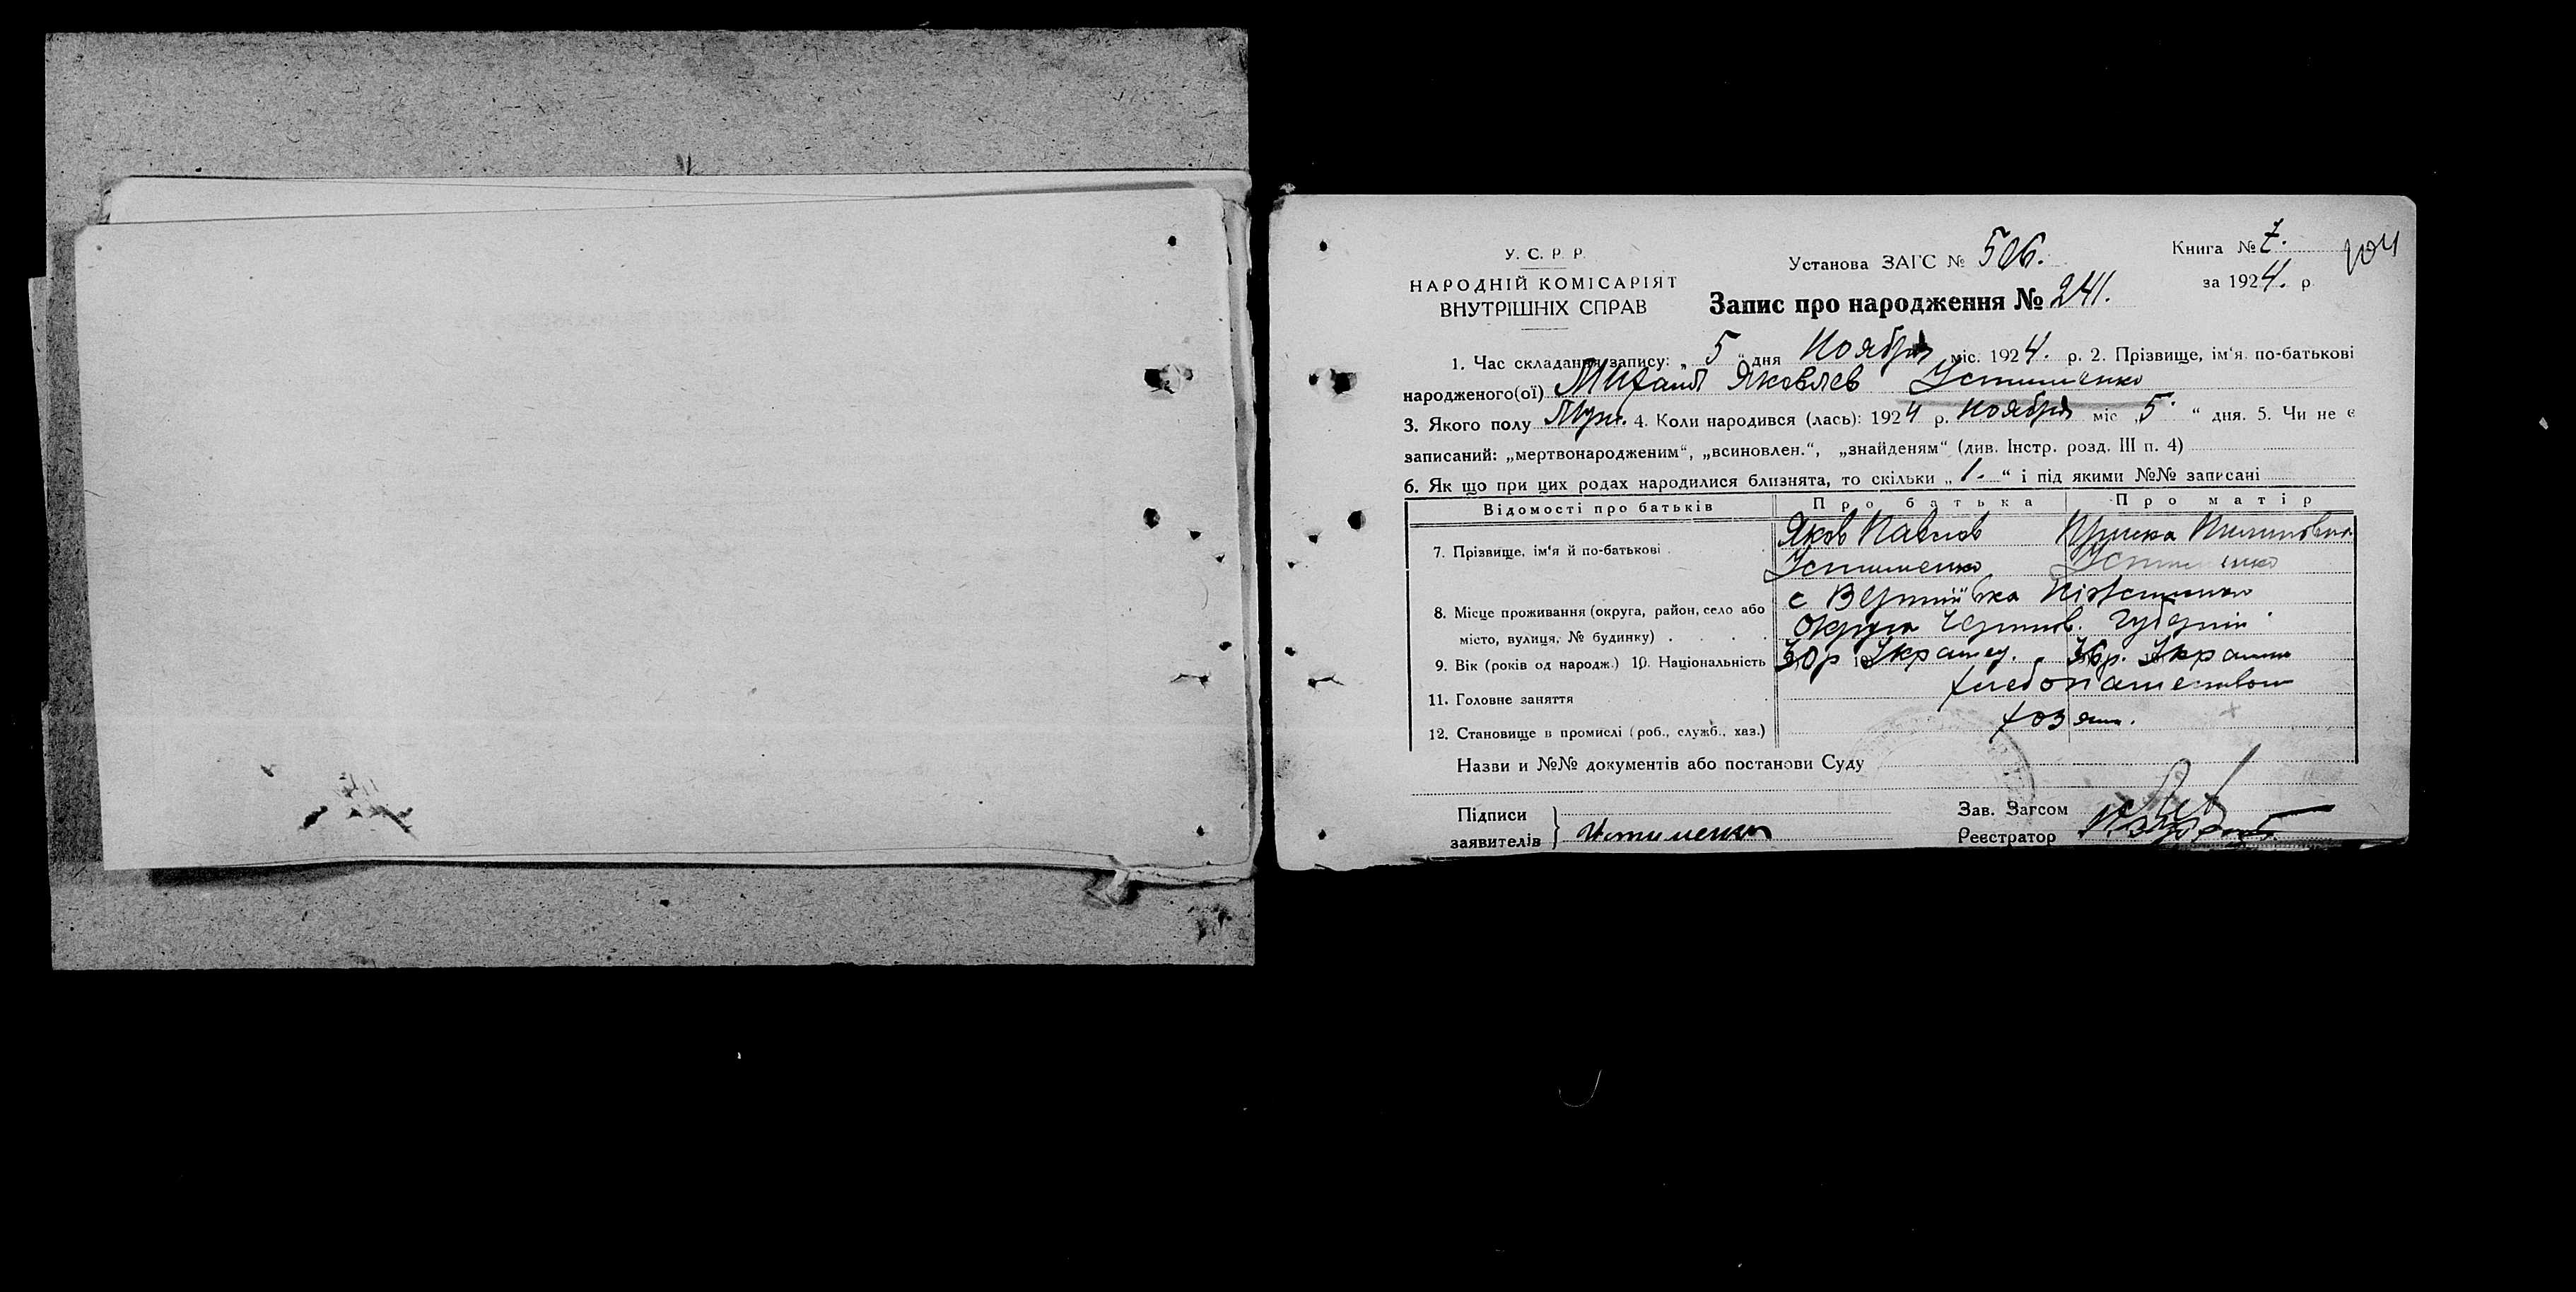 У. С. Р. Р.
НАРОДНІЙ КОМІСАРІЯТ
ВНУТРІШНІХ СПРАВ
Установа ЗАГС № 506.
Книга № 7.
за 1924. р.
204
Запис про народження № 241.
1. Час складання запису: „5“ дня Ноября міс. 1924. р. 2. Прізвище, ім‘я по-батькові
народженого(ої) Михаил Яковлев Устименко
3. Якого полу Муж. 4. Коли народився (лась): 1924 р. ноября міс „5“ дня. 5. Чи не є
записаний: „мертвонародженим“, „всиновлен.“, „знайденям“ (див. Інстр. розд. III п. 4)
6. Як що при цих родах народилися близнята, то скільки „1.“ і під якими №№ записані
Відомості про батьків Про батька Про матір
7. Прізвище, ім‘я й по-батькові Яков Павлов
Устименко Устименко
8. Місце проживання (округа, район, село або с Вертіївка Ніженська
місто, вулиця, № будинку) Округа Чернигов. Губернії
9. Вік (років од народж.) 10. Національність 30 р 10 Украинец. 36 р. Украин
11. Головне заняття хлебопашеством
12. Становище в промислі (роб., служб., хаз.) хозяин.
Назви и №№ документів або постанови Суду
Підписи
заявителів Устименко
Зав. Загсом
Реєстратор